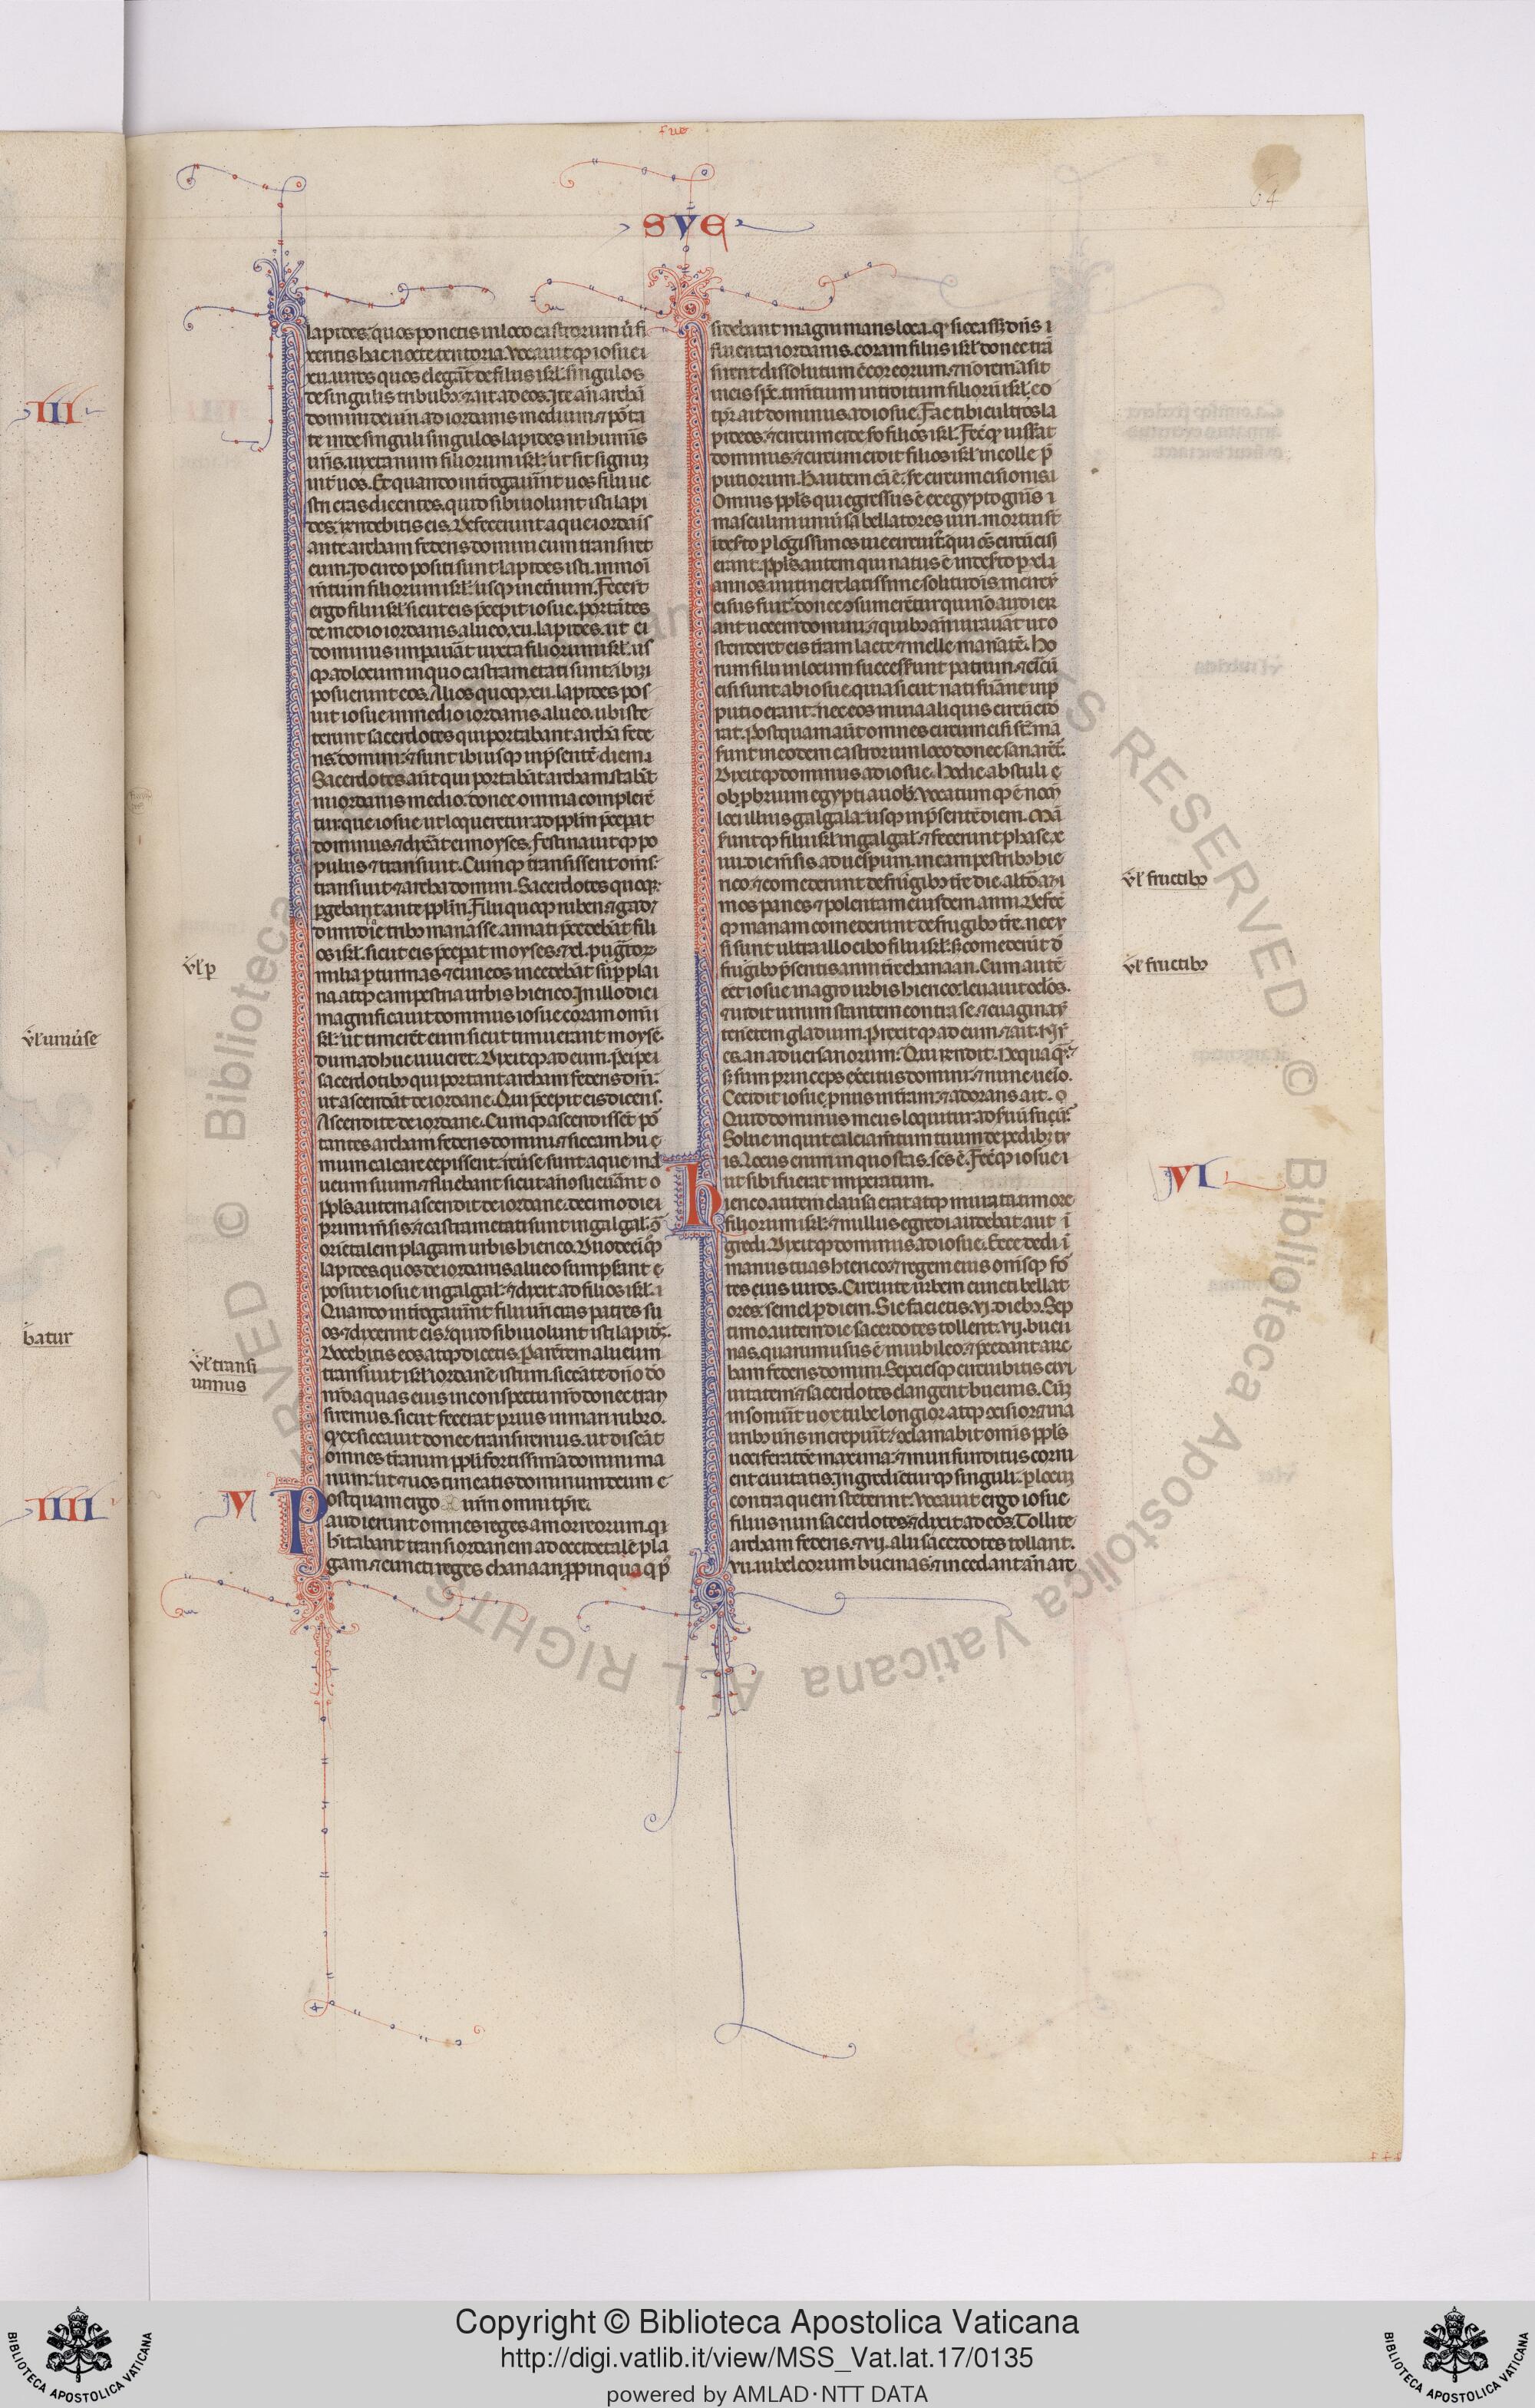 fue
64
SVE
lapides. quos ponetis in loco castrorum ubi fi
xeritis hac nocte tentoria. Vocauitq; iosue .i.
xii. uiros quos elegāt de filiis isrl. singulos
de singulis tribub; ⁊ ait ad eos. Ite añ archā
domini dei uri ad iordanis medium. ⁊ pōrta
te inde singuli singulos lapides in hūis
uris. iuxta num̄ filiorum isrl. ut sit signū
int̄ uos. Et quando int̄rogauint uos filii ue
stri cras dicentes. quid sibi uolunt isti lapi
des. rn̄debitis eis. Defecerunt aque iordāis
ante archam federis domini cum transiret
eum. Idcirco positi sunt lapides isti in moī
m̄tum filiorum isrl. usq; in et̄num. Fecerūt
ergo filii isrl. sicut eis p̄cepit iosue. portātes
de medio iordanis alueo .xii. lapides. ut ei
dominus imparāt iuxta filiorum isrl. us
q; ad locum in quo castrametati sunt. ibiq;
posuerunt eos. Alios quoq; .xii. lapides pos
uit iosue in medio iordanis alueo. ubi ste
terunt sacerdotes qui portabant archā fede
ris domini. ⁊ sunt ibi usq; in p̄sentē diem.
Sacerdotes aūt qui portabāt archam stabāt
in iordanis medio. donec omnia complerē
tur. que iosue ut loqueretur ad pplm p̄cepat
dominus. ⁊ dixāt ei moyses. Festinauitq; po
pulus ⁊ transiuit. Cumq; transissent om̄s.
transiuit ⁊ archa domini. Sacerdotes quoq;
p̄gebant ante pplm. Filii quoq; ruben ⁊ gad ⁊
dimidie tribꝰ manasse. armati p̄cedebāt fili
os isrl. sicut eis p̄cepat moyses. ⁊ xl. pugtor
milia p turmas ⁊ cuneos incedebāt sup plai
na atq; campestria urbis hierico. In illo die .i.
magnificauit dominus iosue coram omīi
isrl. ut timerēt eum sicut timuerant moysē.
dum adhuc uiueret. Dixitq; ad eum. P̄cipe .i.
sacerdotibꝰ qui portant archam federis dni.
ut ascendāt de iordane. Qui p̄cepit eis dicens.
Ascendite de iordane. Cumq; ascendissēt por
tantes archam federis domini. ⁊ siccam hu
mum calcare cepissent. reuse sunt aque in al
ueum suum. ⁊ fluebant sicut añ consueuant.
ppls autem ascendit de iordane. decimo die .i.
primi m̄sis. ⁊ castrametati sunt in galgal. ɔ̄
orīetalem plagam urbis hierico. Duodeciq;
lapides quos de iordanis alueo sumpsant
posuit iosue in galgal. ⁊ dixit ad filios isrl. .i.
Quando int̄rogauint filii uri cras patres su
os. ⁊ dixerint eis. quid sibi uolunt isti lapides.
Docebitis eos atq; dicetis. Parētem alueum
transiuit isrl. iordanē istum. siccāte dno deo
nro aquas eius in conspectu nro donec tran
siremus. sicut fecerat prius in mari rubro.
q exsiccauit donec transiremus. ut discāt
omnes t̄rarum ppli fortissimā domini ma
num. ut ⁊ uos timeatis dominum deum
urm omni tp̄re.
Postquam ergo
audierunt omnes reges amorreorum. qi
hitabant trans iordanem ad occidētalē pla
gam. ⁊ cuncti reges chanaan. ppinqua q p
sidebant magni maris loca. q siccass dns .i.
fluenta iordanis. coram filiis isrl. donec trā
sirent. dissolutum ē cor eorum. ⁊ nō remāsit
in eis sp̄c. timētium introitum filioru isrl. Eo
tp̄r ait dominus ad iosue. Fac tibi cultros la
pideos. ⁊ circumcide so filios isrl. Fecitq; iussat
dominus. ⁊ circumcidit filios isrl. in colle p̄
putiorum. Hec autem cā ē. sc̄e circumcisionis.
Omnis ppls qui egressus ē ex egypto gn̄is .i.
masculini uniūsi bellatores uiri. mortui st̄
i deserto p lōgissimos uie circuit̄. qui oēs circūcisi
erant. Ppls autem qui natus ē in desto p xl. a
annos itineris latissime solitudīs incircū
cisus fuit. donec ɔsumerētur qui nō audier
ant uocem domini. ⁊ quibꝰ añ iurauāt ut o
stenderet eis t̄ram lacte ⁊ melle manātē. Ho
rum filii in locum successerunt patrum. ⁊ circū
cisi sunt ab iosue. quia sicut nati fuāant in p̄
putio erant. nec eos in uia aliquis circūcid
rat. Postquam aūt omnes circumcisi st̄. mā
serunt in eodem castrorum loco donec sanarēt̄.
Dixitq; dominus ad iosue. Hodie abstuli
obprbrium egypti a uob. Vocatumq; ē nom̄
loci illius galgala. usq; in p̄sentē diem. Mā
seruntq; filii isrl. in galgal. ⁊ fecerunt phase. x
iiii. die m̄sis. ad uesp̄um. in campestribꝰ hie
rico. ⁊ comederunt de frugibꝰ t̄re die alto. a
mos panes ⁊ polentam eiusdem anni. Defec
q; manna ɔm comederunt de frugibꝰ t̄re. nec
si sunt ultra illo cibo filii isrl. s comederūt d
frugibꝰ p̄sentis anni t̄re chanaan. Cum autē
eēt iosue in agro urbis hierico. leuauit oclos.
⁊ uidit uirum stantem contra se. ⁊ euaginatū
tenētem gladium. Prexitq; ad eum. ⁊ ait. Nr
es. an aduersariorum. Qui rn̄dit. Nequaq̄.
s sum princeps exercitus domini. ⁊ nunc uenio.
Cecidit iosue pnus in t̄ram. ⁊ adorans ait.
Quid dominus meus loquitur ad seruū suū.
Solue inquit calciam̄tum tuum de pedibꝰ tu
is. Locus enim in quo stas. scs ē. Fecitq; iosue .i.
ut sibi fuerat imperatum.
Hierico autem clausa erat atq; munita timore
filiorum isrl. ⁊ nullus egredi audebat aut i
gredi. Dixitq; dominus ad iosue. Ecce dedi i
manus tuas hierico. ⁊ regem eius om̄sq; for
tes eius uiros. Circuite urbem cuncti bellat
ores. semel p diem. Sic facietis .vj. diebꝰ. Sep
timo autem die sacerdotes tollent .vij. buci
nas. quarum usus ē in iubileo. ⁊ p̄cedant arc
bam federis domini. Sepciesq; circuibitis ciui
uitatem. ⁊ sacerdotes clangent bucinis. Cūq;
insonuit uox tube longior atq; ɔcisior. ⁊ in a
uribꝰ uris increpuit. ɔclamabit om̄is ppls
uociferatōe maxima. ⁊ muri funditus corru
ent ciuitatis. Ingredienturq; singuli. p locum
contra quem steterint. Vocauit ergo iosue
filius nun sacerdotes. ⁊ dixit ad eos. Tollite
archam federis. ⁊ vij. alii sacerdotes tollant.
vii. iubeleorum bucinas. ⁊ incedant añ arc
III
IIII
V
VI
ul̄ umūse
batur
ul̄ p
ul̄ transi
uimus
ul̄ fructibꝰ
ul̄ fructibꝰ
Biblioteca Apostolica Vaticana ALL RIGHTS RESERVED ©
Copyright © Biblioteca Apostolica Vaticana
http://digi.vatlib.it/view/MSS_Vat.lat.17/0135
powered by AMLAD·NTT DATA
BIBLIOTECA APOSTOLICA VATICANA
BIBLIOTECA APOSTOLICA VATICANA